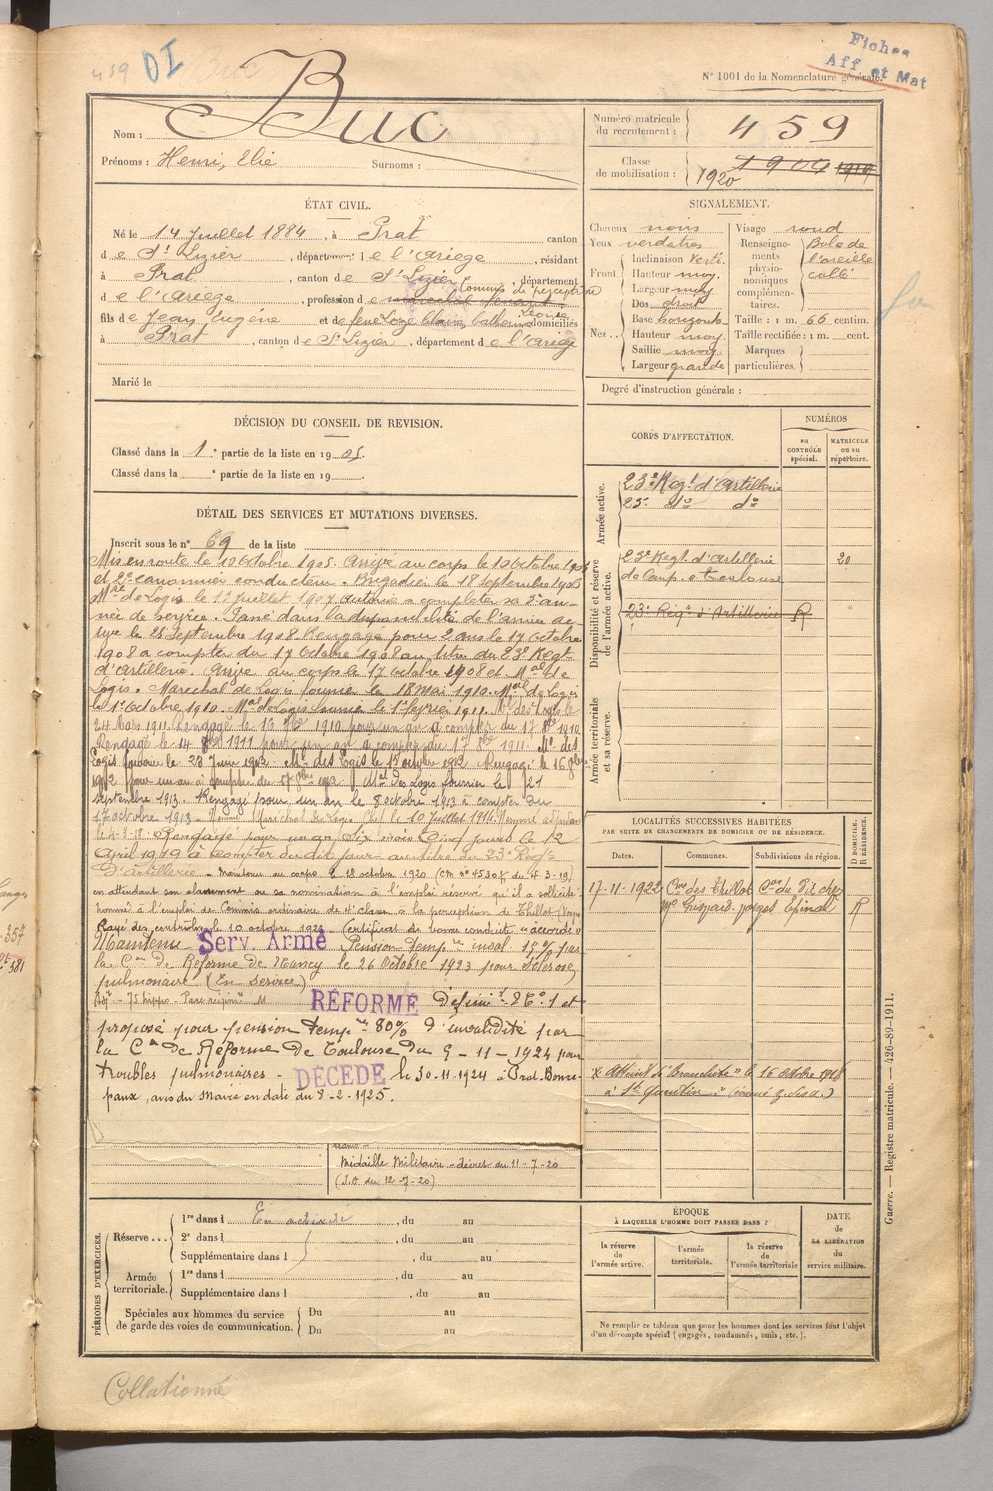 459 DI Buc
Fiches
Aff et Mat
N° 1001 de la Nomenclature générale.
Nom : Buc
Prénoms : Henri, Elie Surnoms :
Numéro matricule du recrutement : 459
Classe de mobilisation : 1904 1919 1920
ÉTAT CIVIL.
Né le 14 Juillet 1884, à Prat canton
de St Lizier, département de l'Ariège, résidant
à Prat, canton de St Lizier, département
de l'Ariège, profession de maréchal ferrant Commis de perception
fils de Jean Eugène et de feue Loze Claire Catherine Léonie domiciliés
à Prat, canton de St Lizier, département de l'Ariège
Marié le
SIGNALEMENT.
Cheveux noirs
Yeux verdâtres
Front. Inclinaison verti.
Hauteur moy.
Largeur moy
Nez... Dos droit
Base horizont.
Hauteur moy.
Saillie moy.
Largeur grande
Visage rond
Renseignements physionomiques complémentaires. Bole de l'oreille collé
Taille : 1 m. 66 centim.
Taille rectifiée : 1 m. cent.
Marques particulières.
Degré d'instruction générale :
DÉCISION DU CONSEIL DE REVISION.
Classé dans la 1e partie de la liste en 1905.
Classé dans la e partie de la liste en 19 .
DÉTAIL DES SERVICES ET MUTATIONS DIVERSES.
Inscrit sous le n° 69 de la liste
Mis en route le 10 Octobre 1905. Arrivé au corps le 10 Octobre 1905
et 2e canonnier conducteur. Brigadier le 18 Septembre 1906
Mal de Logis le 1er Juillet 1907. Autorisé a completer sa 3e an-
née de service. Passé dans la disponibilité de l'armée ac-
tive le 28 Septembre 1908. Rengagé pour 2 ans le 17 Octobre
1908 a compter du 17 Octobre 1908 au titre du 23e Regt
d'artillerie. Arrivé au corps le 17 octobre 1908 et Mal de
Logis. Marechal de Logis fourrier le 18 Mai 1910. Mal de Logis
le 1er Octobre 1910. Mal de Logis fourrier le 1er fevrier 1911. Mal des Logis le
24 Mars 1911. Rengagé le 16 1910 pour un an a compter du 17 8bre 1910
Rengagé le 14 8bre 1911 pour un an a compter du 17 8bre 1911. Mal des
Logis fourrier le
1912 pour un an à compter du Mal des Logis fourrier le 21
septembre 1913. Rengagé pour un an le 8 octobre 1913 à compter du
17 octobre 1913. Nommé Maréchal des Logis Chef le 10 Juillet 1914. Nommé adjudant
le 4-9-18. Rengagé pour un an Six mois Cinq jours le 12
April 1919 à compter du dit jour au titre du 23e Régt
D'artillerie. Maintenu au corps le 18 octobre 1920 (CM n° du 4-3-19)
en attendant son classement ou sa nomination à l'emploi réservé qu'il a sollicité.
Nommé à l'emploi de Commis ordinaire de 4e classe à la perception de Thillot (Vosges)
Rayé des contrôles le 10 octobre Certificat de bonne conduite "accordé"
Maintenu Serv. Armé Pension temp. inval 15% par
la Con de Réforme de Nancy le 26 Octobre 1923 pour Sclérose
pulmonaire (En service)
RÉFORMÉ Défini. n° 1 et
proposé pour pension temp. 80% d'invalidité par
la Con de Réforme de Toulouse du 9-11-1924 pour
troubles pulmonaires. DÉCÉDÉ le 30-11-1924 à Prat-Bonre-
paux, avis du Maire en date du 8-2-1925.
Médaille Militaire - décret du 11-7-20
(J.O. du 12-7-20)
CORPS D'AFFECTATION.
NUMÉROS
au CONTRÔLE spécial.
MATRICULE ou au répertoire.
Armée active.
23e Regt d'Artillerie
23e do do
Disponibilité et réserve de l'armée active.
23e Regt d'Artillerie 20
de Camp. a Toulouse
23e Regt d'Artillerie R
Armée territoriale et sa réserve.
LOCALITÉS SUCCESSIVES HABITÉES
PAR SUITE DE CHANGEMENTS DE DOMICILE OU DE RÉSIDENCE.
Dates. Communes. Subdivisions de région. D DOMICILE. R RÉSIDENCE.
17-11-1922 Cne des Thillot chez
Me Guspard. Vosges Epinal R
x Atteint de "Bronchite" le 16 Octobre 1918
à St Quentin
PÉRIODES D'EXERCICES.
Réserve... 1re dans l En activité, du au
2e dans l , du au
Supplémentaire dans l , du au
Armée territoriale. 1re dans l , du au
Supplémentaire dans l , du au
Spéciales aux hommes du service de garde des voies de communication. Du au
Du au
ÉPOQUE
À LAQUELLE L'HOMME DOIT PASSER DANS :
la réserve de l'armée active.
l'armée territoriale.
la réserve de l'armée territoriale
DATE de LA LIBÉRATION du service militaire.
Ne remplir ce tableau que pour les hommes dont les services font l'objet
d'un décompte spécial (engagés, condamnés, omis, etc.).
Guerre. — Registre matricule. — 426-89-1911.
Collationné